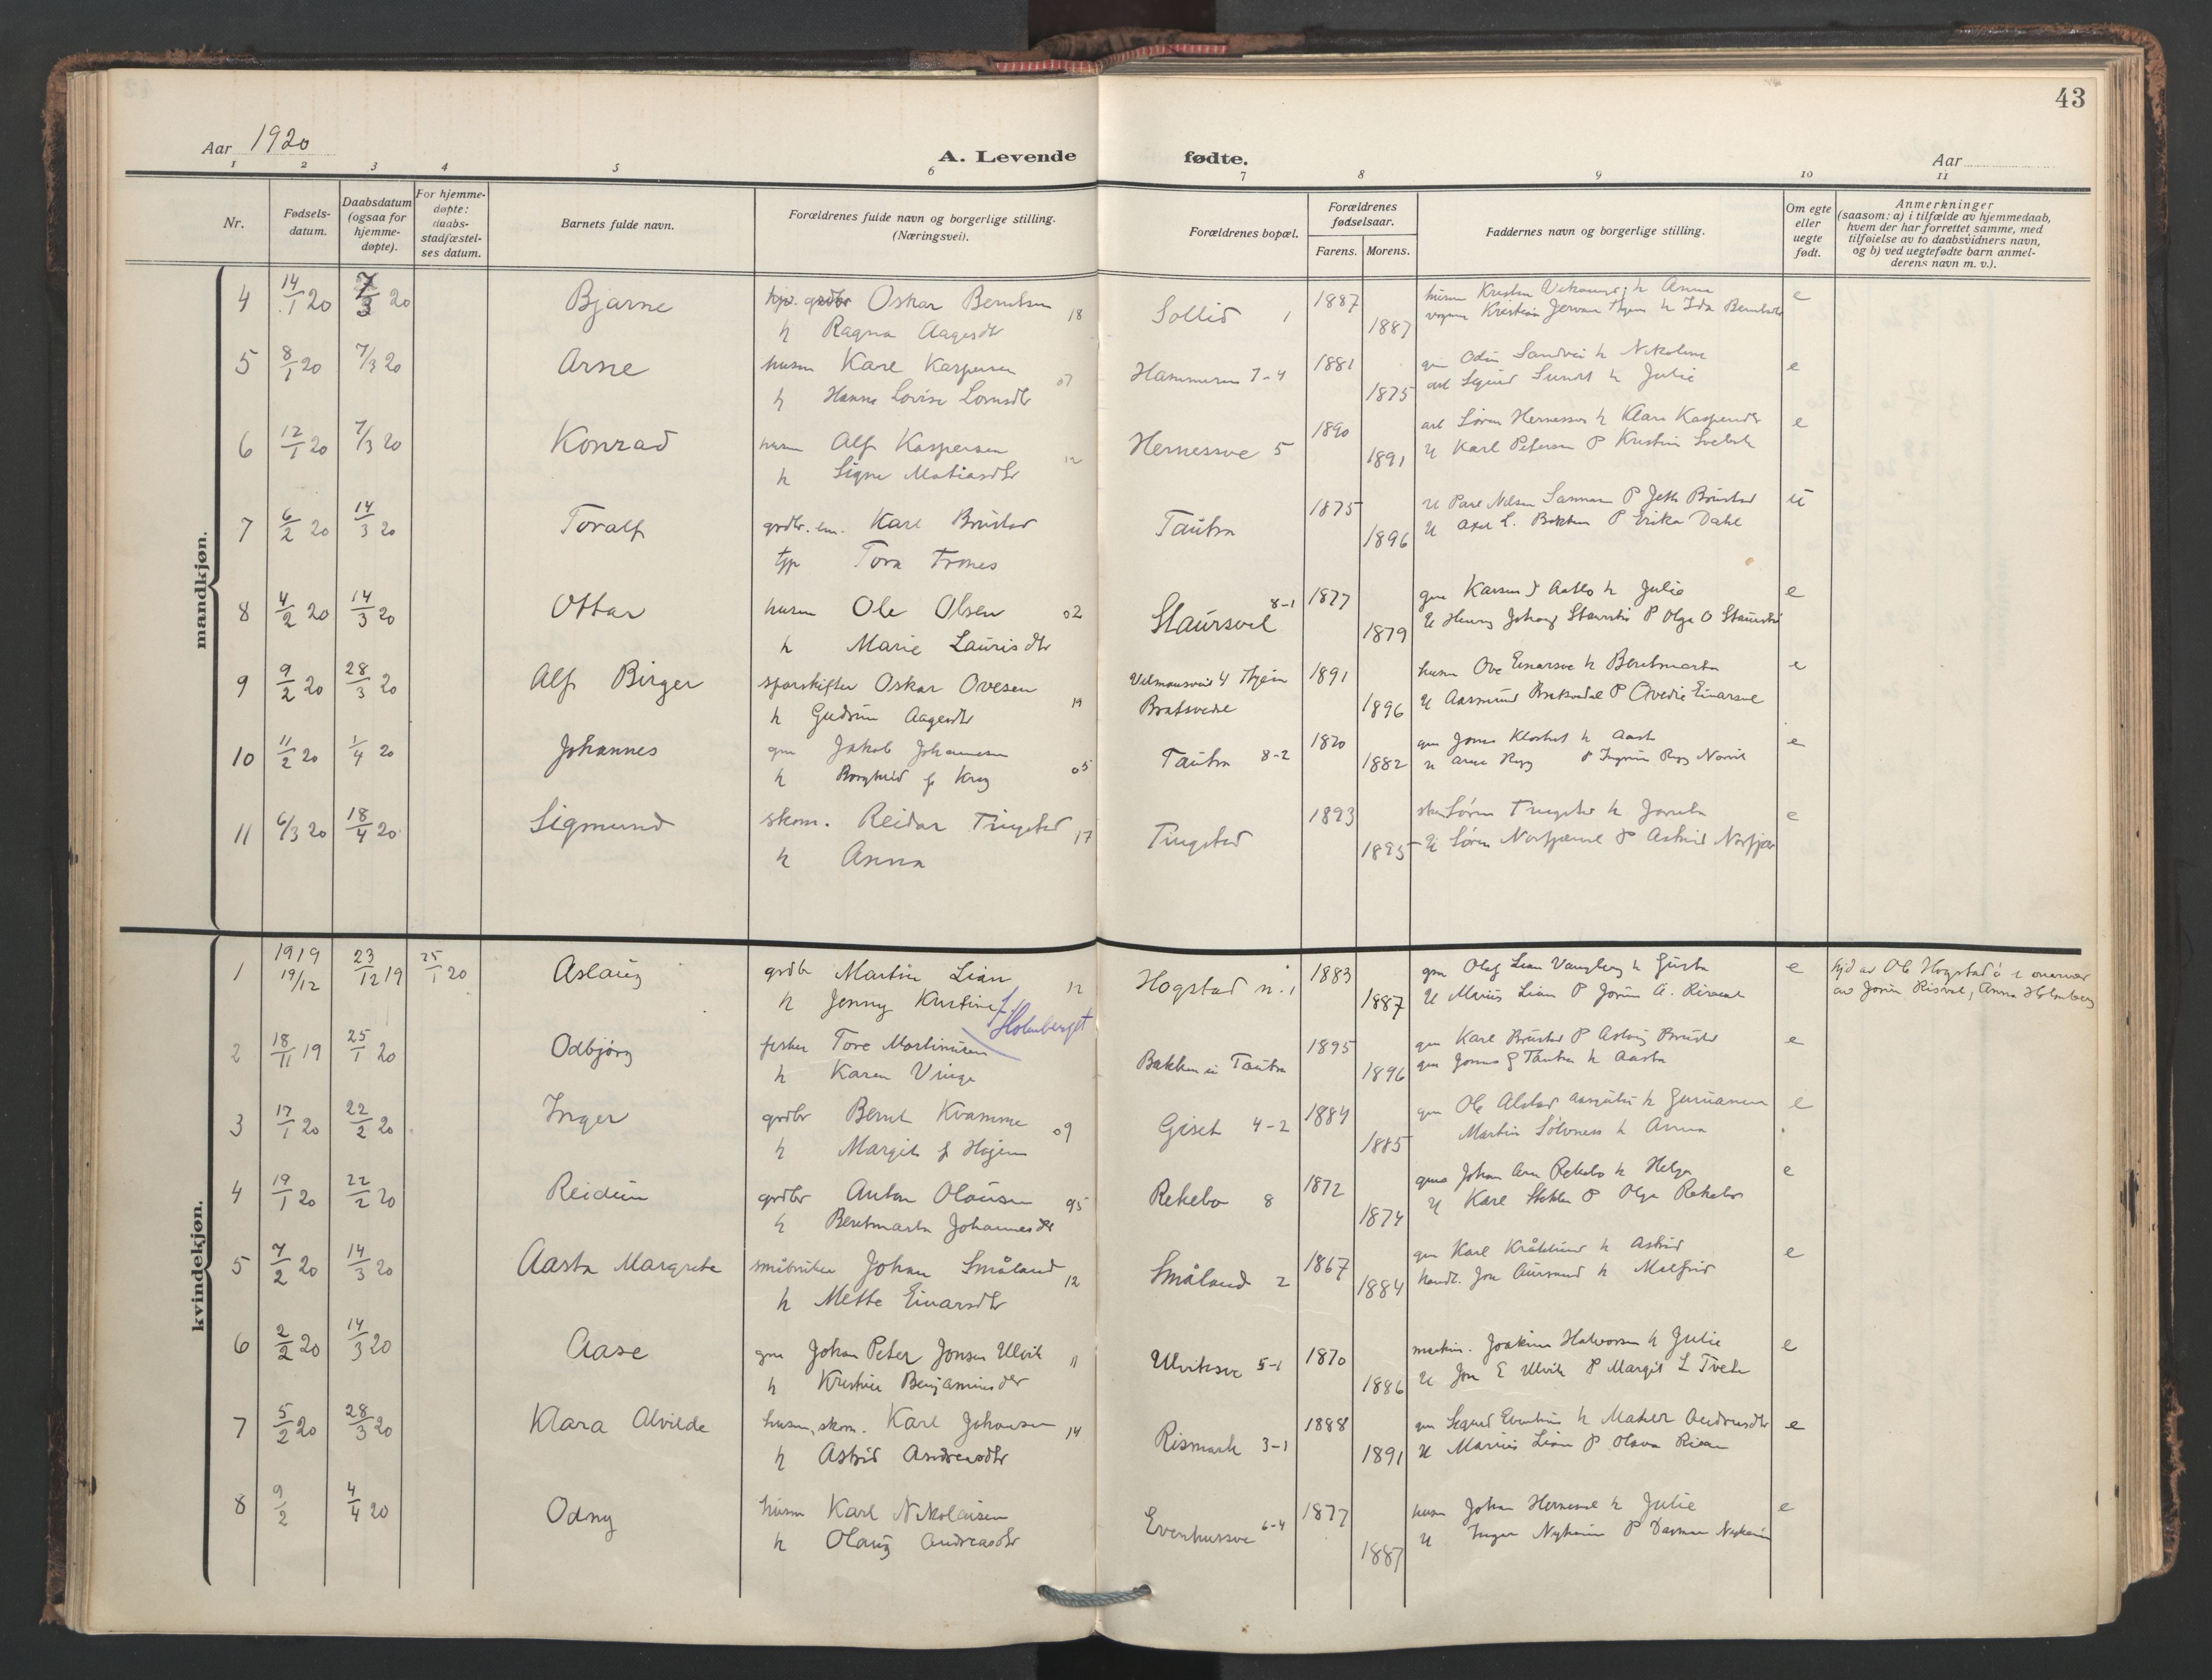 43
Aar 1920
A. Levende fødte.
Aar
1 2 3 4 5 6 7 8 9 10 11
Nr.
Fødsels-
datum.
Daabsdatum
(ogsaa for
hjemme-
døpte).
For hjemme-
døpte:
daabs-
stadfæstel-
ses datum.
Barnets fulde navn.
Forældrenes fulde navn og borgerlige stilling.
(Næringsvei).
Forældrenes bopæl.
Forældrenes
fødselsaar.
Farens. Morens.
Faddernes navn og borgerlige stilling.
Om egte
eller
uegte
født.
Anmerkninger
(saasom: a) i tilfælde av hjemmedaab,
hvem der har forrettet samme, med
tilføielse av to daabsvidners navn,
og b) ved uegtefødte barn anmel-
derens navn m. v.).
mandkjøn.
4 14/1 20 7/3 20 Bjarne Oskar Berntsen 18 Sollid 1 1887 e
h Ragna Aagesdtr 1887
5 8/1 20 7/3 20 Arne husm Karl Kaspersen 07 Hammeren 7-4 1881 gm Odin Sandvei h Nikoline e
h Hanna Lovise 1875 arb Sigurd Sundt h Julie
6 12/1 20 7/3 20 Konrad husm Alf Kaspersen 12 Hernessve 5 1890 arb Søren Hernessve h Klara Kaspersdtr e
h Signe Matiasdtr 1891 U Karl Petersen P Kristin
7 6/2 20 14/3 20 Toralf grdbr. em. Karl Brustad Tautra 1875 U Paul Nilsen P Brustad u
Tora Trones 1896 U Axel L. Bakken P Erika Dahl
8 4/2 20 14/3 20 Ottar husm Ole Olsen 02 Staursvel 8-1 1877 gm Karsen h Julie e
h Marie Laurisdtr 1879 U Henry P Olga O
9 9/2 20 28/3 20 Alf Birger sporskifter Oskar Ovesen 19 1891 husm Ove Einarsve h Beretmarta e
h Gudrun Aagesdtr 1896 U Aasmund P Ovedie Einarsve
10 11/2 20 1/4 20 Johannes gm Jakob Johannesen 05 Tautra 8-2 1870 gm Jonas Klostret h Aasta e
h Borghild f Krog 1882 U Arne Rygg P Rygg
11 6/3 20 18/4 20 Sigmund skom. Reidar Tingstad 17 Tingstad 1893 Søren Tingstad h e
h Anna 1895 U Søren P Astrid
kvindekjøn.
1 1919 19/12 23/12 19 25/1 20 Aslaug grdbr Martin Lian 12 Hogstad n. 1 1883 gm Olaf Lian Vangberg h Gusta e hjd av Ole Hogstad
h Jenny Kristine f. Holmberget 1887 U Marius Lian P Jorun A. av Jorun Risvel, Anna Holmberg
2 18/11 19 25/1 20 Odbjørg fisker Tore Martinusen Bakken i Tautra 1895 gm Karl Brustad P Aslaug Brustad e
h Karen Vinge 1896 gm Jonas G Tautra h Aasta
3 17/1 20 22/2 20 Inger grdbr Bernt Kvamme 09 Giset 4-2 1884 gm Ole Alstad h e
h Margit f Hojem 1885 Martin Solvness h Anna
4 19/1 20 22/2 20 Reidun grdbr Anton Olausen 95 Rekebo 8 1872 Johan Arn Rekebo h Helga e
h Beretmarta Johannesdtr 1874 U Karl P Olga Rekebo
5 7/2 20 14/3 20 Aasta Margrete småbruker Johan Småland 12 Småland 2 1867 gm Karl h Astrid e
h Mette Einarsdtr 1884 handl. Jon Aursand h Malfrid
6 2/2 20 14/3 20 Aase gm Johan Peter Jonsen Ulvik 11 Ulviksve 5-1 1870 maskin. Joakim Halvorsen h Julie e
h Kristine Benjaminsdtr 1886 U Jon E Ulvik P Margit L
7 5/2 20 28/3 20 Klara Alvilde husm, skom. Karl Johansen 14 Rismark 3-1 1888 gm Sigurd h Andreasdtr e
h Astrid Andreasdtr 1891 U Marius Lian P Olava
8 9/2 4/4 20 Odny husm Karl Nikolaisen Evenhussve 6-4 1877 husm Johan h Julie e
h Olaug Andreasdtr 1887 U Inger Nyheim P Dagmar Nyheim